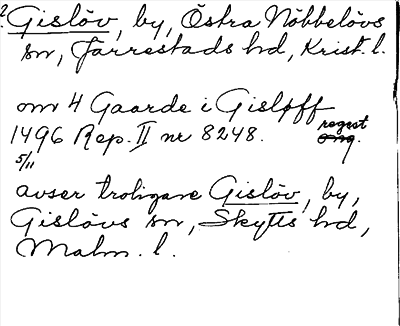 ? Gislöv, by, Östra Nöbbelövs
sn, Järrestads hd, Krist. l.
om 4 Gaarde i Gisløff
1496 Rep. II nr 8248. regest
5/11
avser troligare Gislöv, by,
Gislövs sn, Skytts hd,
Malm. l.